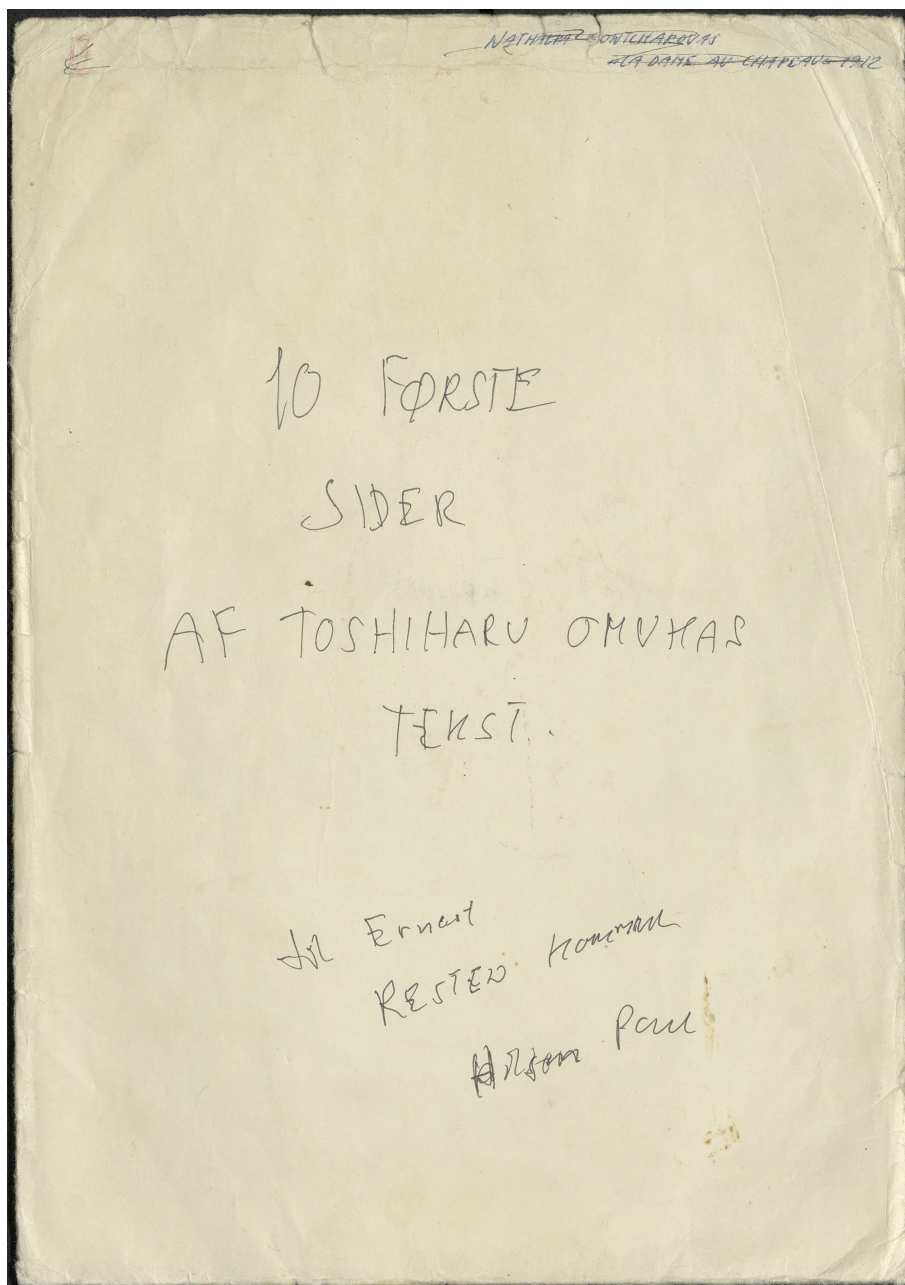 NATHALIE GONTCHAROVAS
"LA DAME AU CHAPEAU" 1912
10 FØRSTE
SIDER
AF TOSHIHARU OMUKAS
TEKST.
til Ernest
RESTEN kommer
Hilsen Poul